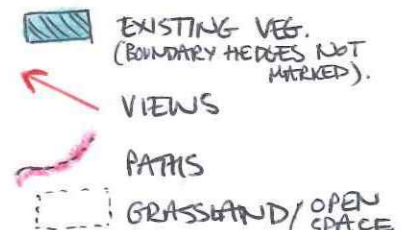 EXISTING VEG.
(BOUNDARY HEDGES NOT
MARKED).
VIEWS
PATHS
GRASSLAND/ OPEN
SPACE